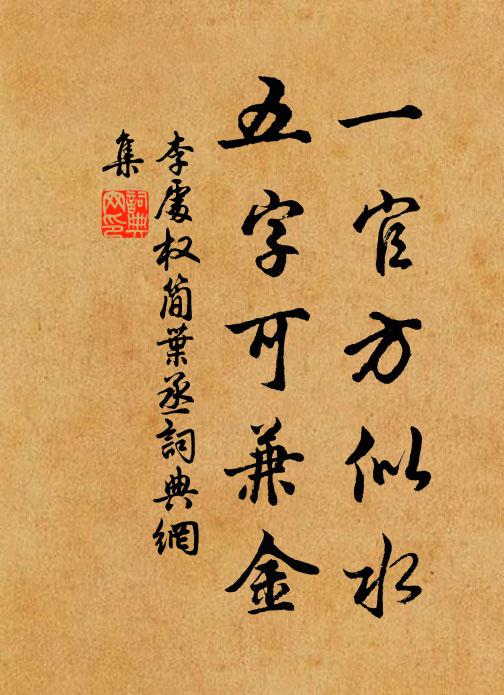 一官方似水
五字可兼金
李處权简葉丞詞典網
集
詞典网印